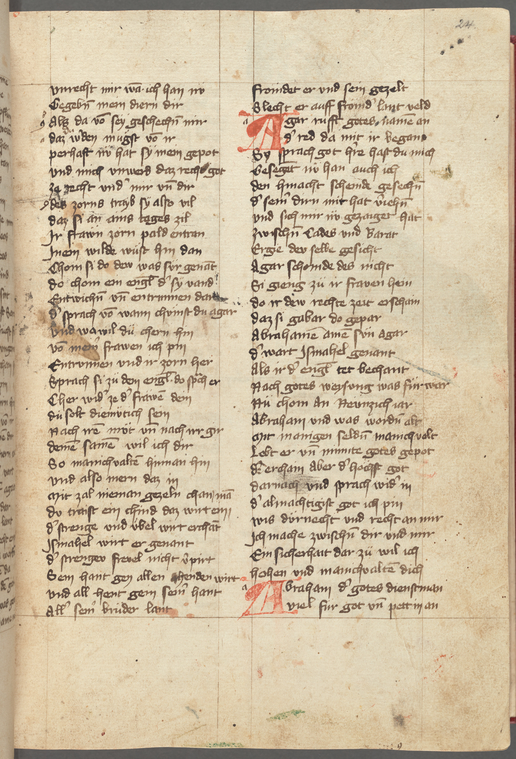 24
vnrecht mir wā ich han nv
Gegebn̄ mein diern dir
Als da vō sey geschechn̄ mir
daz wˀden mugst vō ir
perhaft nv hat sy mein gepot
vnd mich vnwerd daz recht got
ze recht vnd mir vn̄ dir
des zorns traib sy also vil
daz si an ains teges zil
Ir frawn zorn pald entran
Inein wilde wüst hin dan
Chom si do dew was svr genāt
do chom ein engl dˀ sy vand
Entwichn̄ vn̄ entrinnen
dˀ sprach vō wann chvmst du agar
vnd wa wil dü chern hin
vō mein frawen ich pin
Entrvnnen vnd ir zorn her
Sprach si zu den engl do sprch er
Cher widˀ ze dˀ frawē dein
dü solt diemvtich sein
Nach ire mvt vn̄ nach irr gir
deinē samē wil ich dir
So manichvalte hinnan hin
vnd also mern daz in
mit zal nieman gezeln chan
dv traist ein chind daz wirt ein
dˀ strenge vnd vbel wirt erchāt
Jsmahel wirt er genant
dˀ strenger frevel nicht vˀpirt
Sein hant gen allen henden wirt
vnd all hent gein seinˀ hant
All sein brüder lant
fromdet er vnd sein gezelt
Slecht er auff fromdˀ lawt veld
Agar rufft gotes name an
dˀ red da mit ir began
Sy sprach got hˀre hast du mich
Gesegēt nv han auch ich
den hinacht schende gesechn̄
dˀ sein dirn mir hat vˀiechn̄
vnd sich mir nv gezaiget hat
zwischn̄ Cades vnd Barat
Ergie der selbe gesicht
Agar schamde des nicht
Si gieng zü ir frawen hein
do ir dew rechte zeit erschain
daz si gabar do gepar
Abrahamē ainē svn Agar
dˀ wart Jsmahel genant
Als ir dˀ engl tet bechant
Nach gotes weysvng was für war
Nü chom an Newnzich iar
Abraham vnd was wordn̄ alt
mit manigen seldn̄ manichvalt
Lebt er vn̄ minnte gotes gepot
Erchain aber dˀ hochst got
darnach vnd sprach widˀ in
dˀ almachtigist got ich pin
wis dvrnecht vnd recht an mir
Ich mache zwischn̄ dir vnd mir
Ein sicherhait dar zü wil ich
hohen vnd manichvalte dich
Abraham dˀ gotes dienstman
viel für got vn̄ pett in an